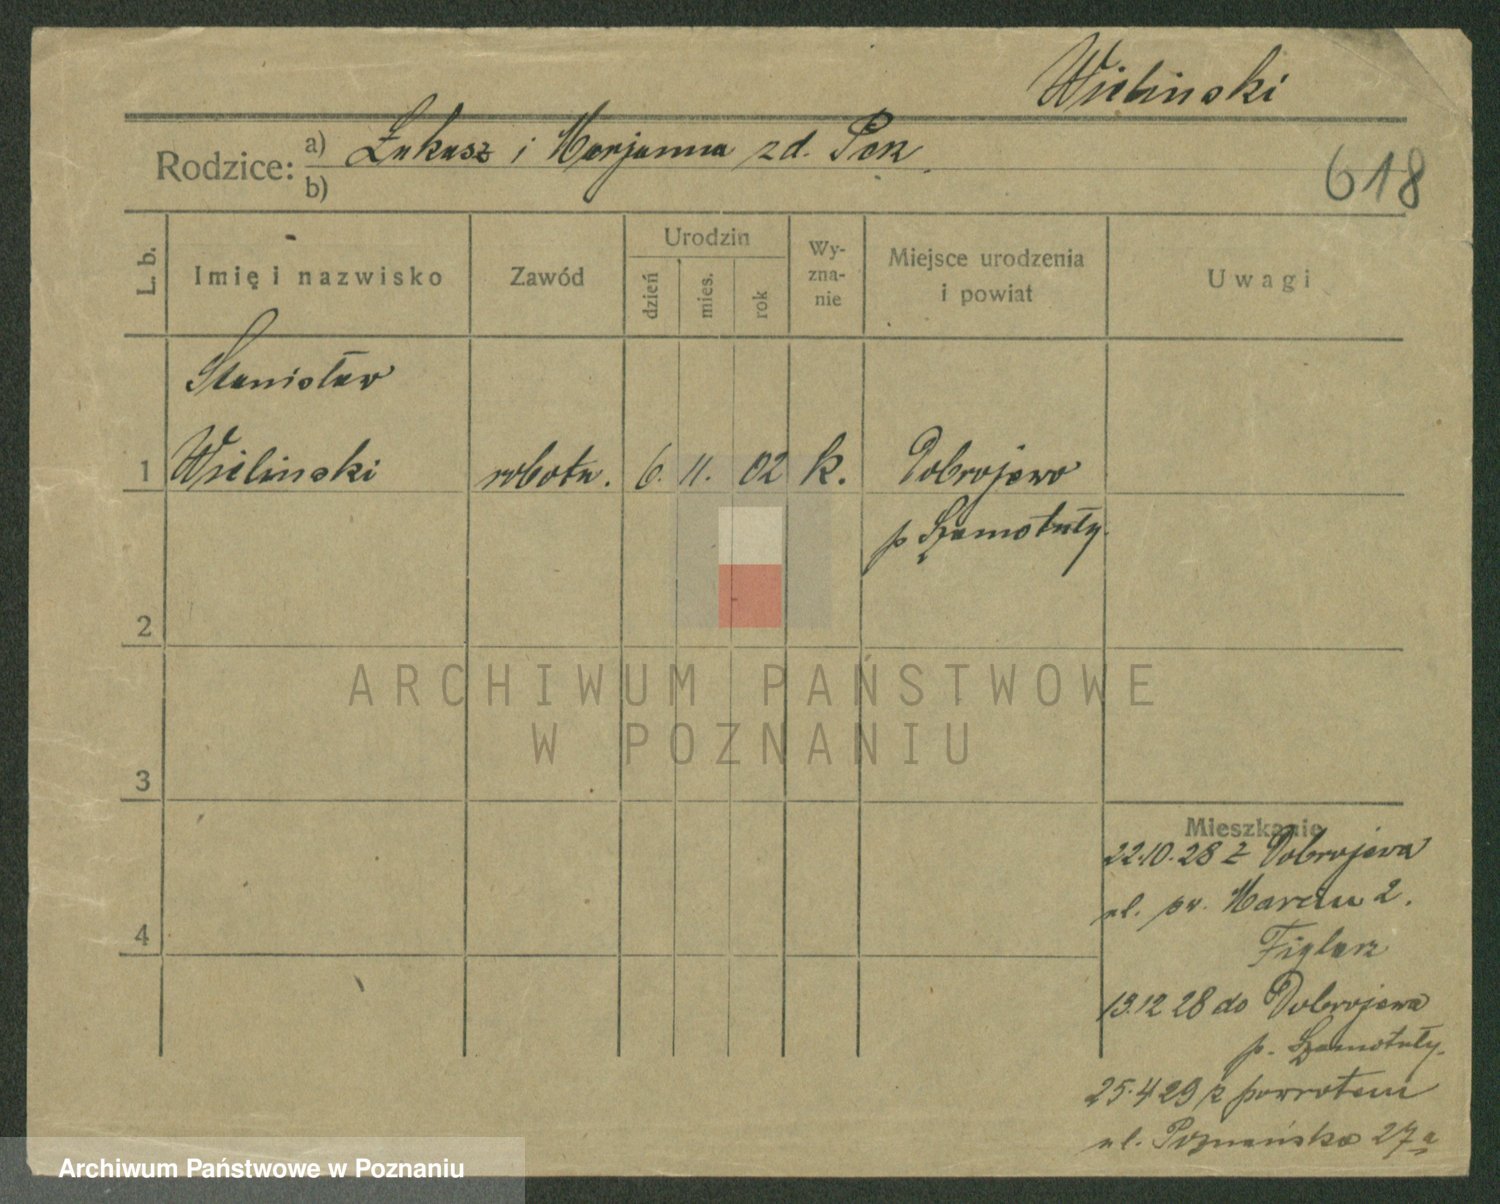 Wieliński
Rodzice: a) Łukasz i Marjanna zd. Pok
b)
618
L. b.
Imię i nazwisko
Zawód
Urodzin
dzień
mies.
rok
Wy-
zna-
nie
Miejsce urodzenia
i powiat
Uwagi
Stanisław
1 Wieliński robotn. 6. 11. 02 k. Dobrojewo
p Szamotuły.
2
ARCHIWUM PAŃSTWOWE
W POZNANIU
3
Mieszkanie
22.10.28 z Dobrojewa
ul. św. Marcin 2.
4
Figlarz
13.12 28 do Dobrojewa
p. Szamotuły.
25.4 29 z powrotem
ul. Poznańska 27a
Archiwum Państwowe w Poznaniu